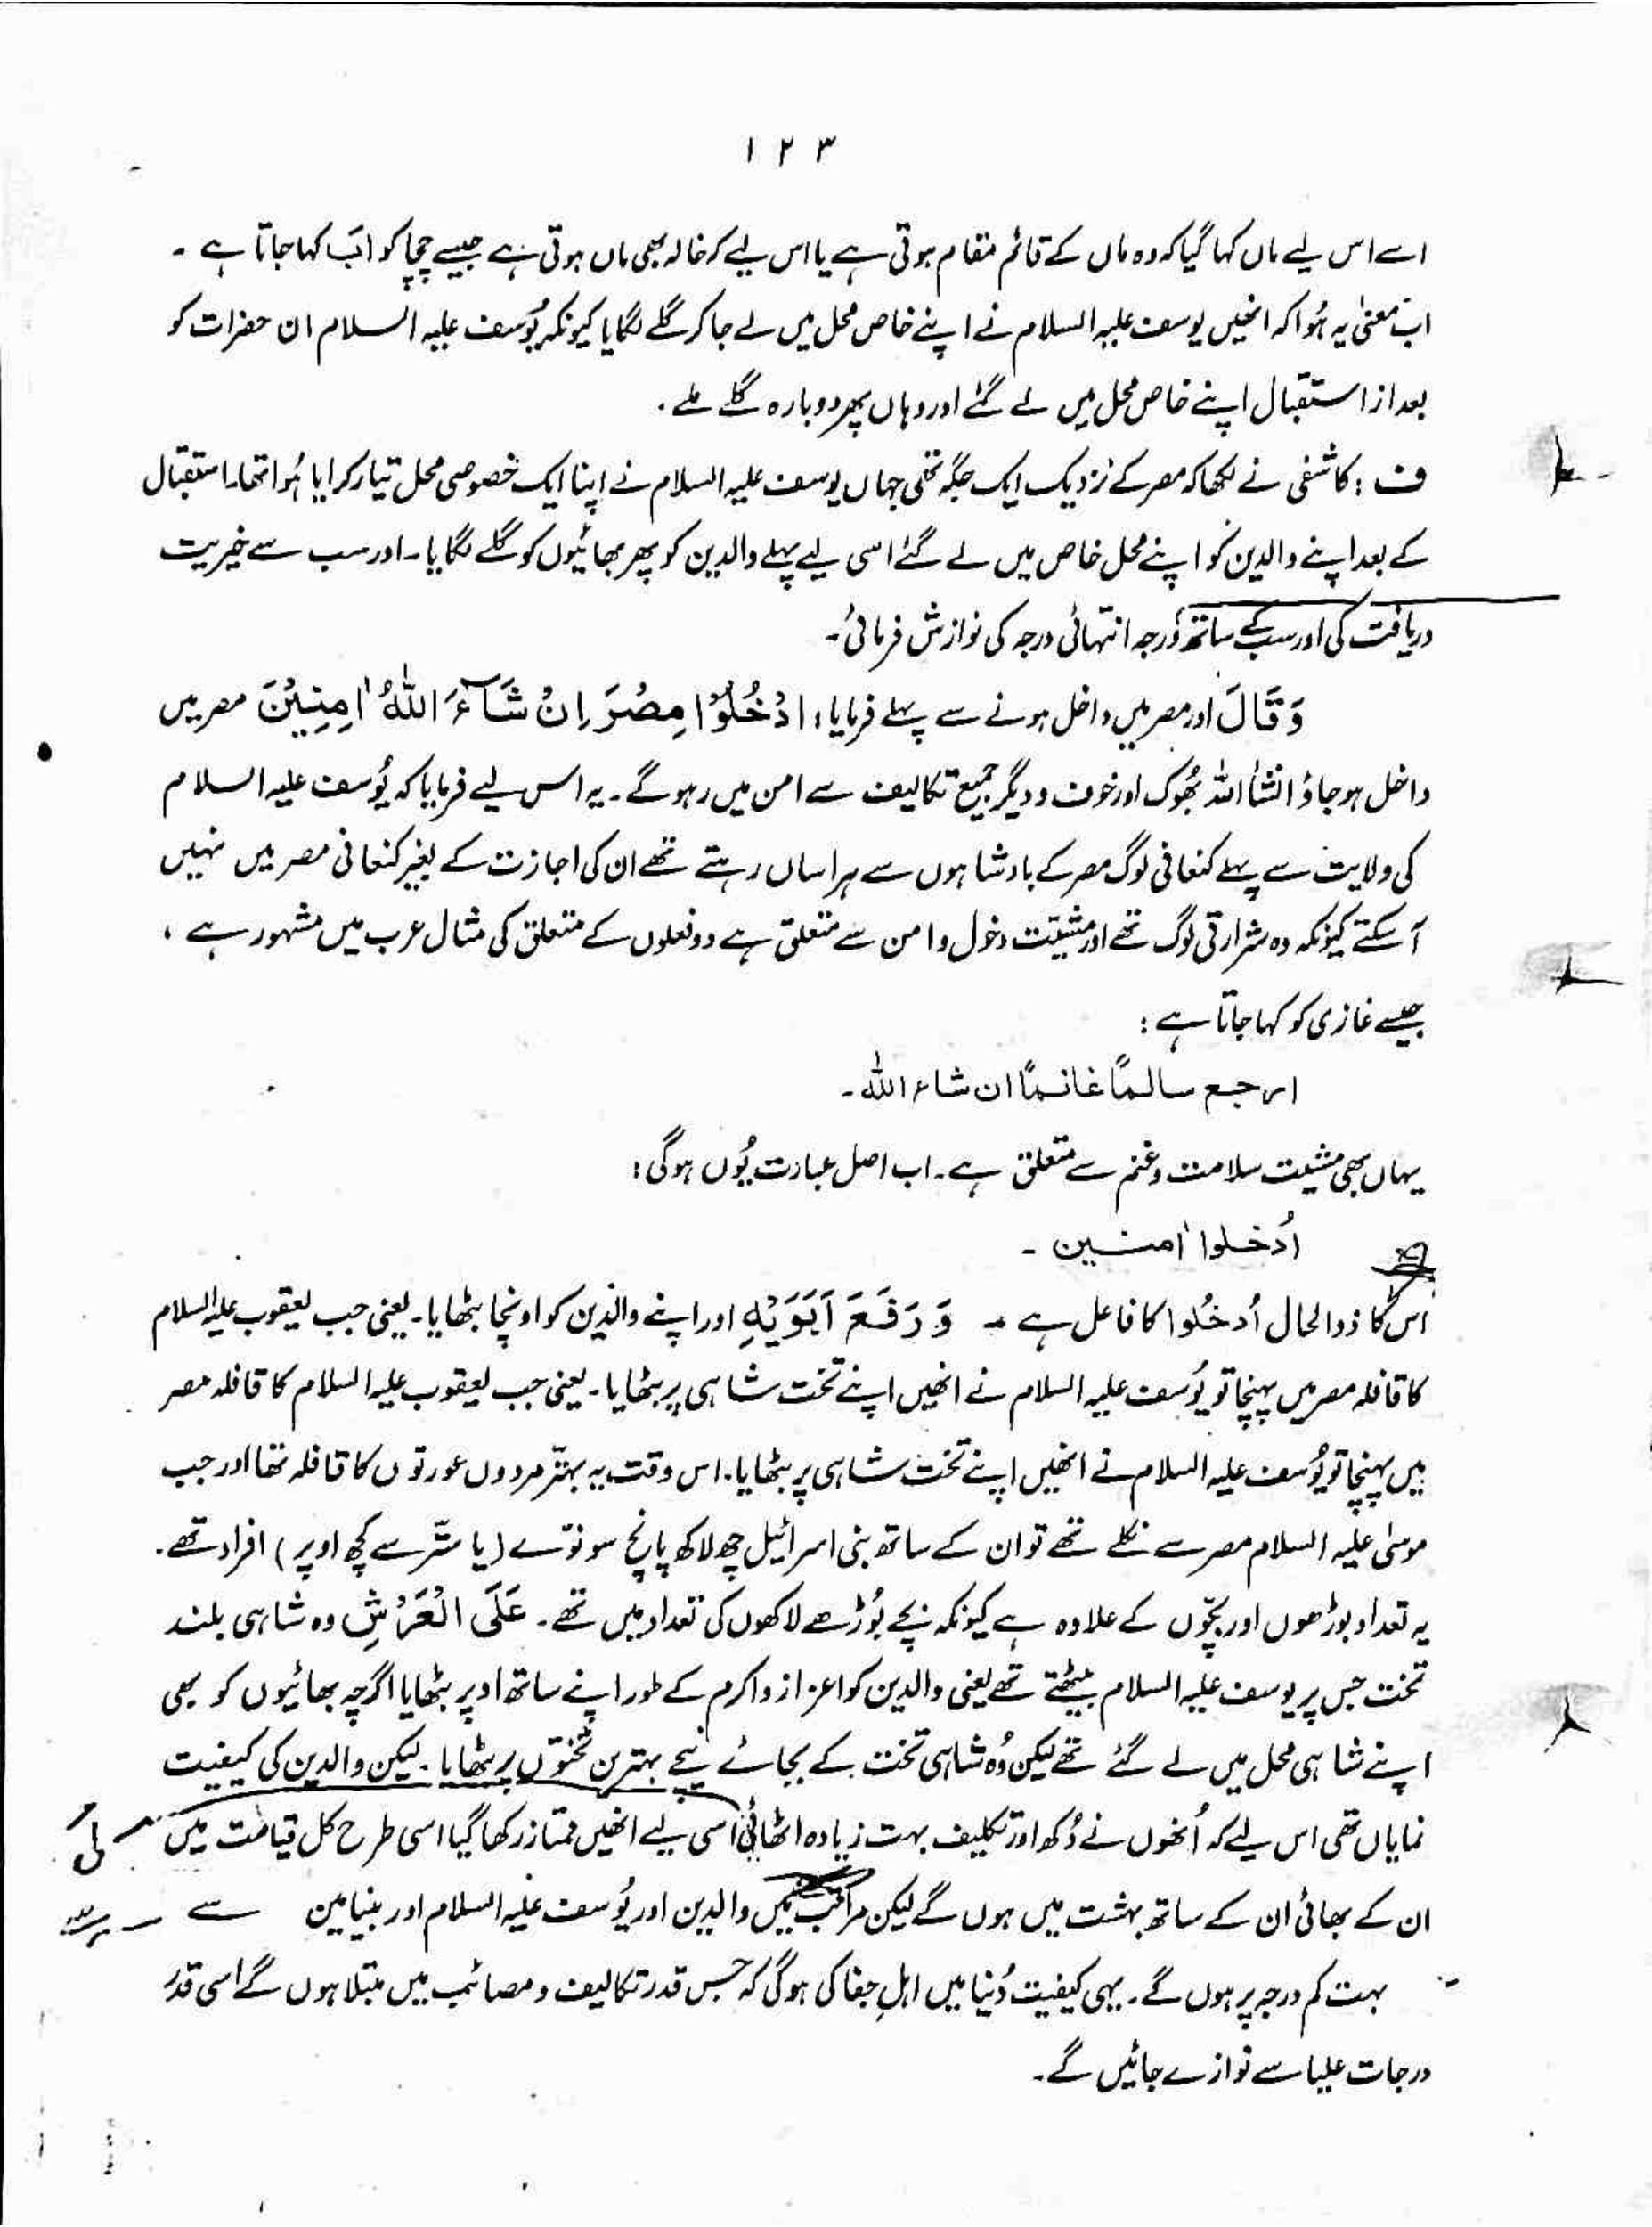 ۱۲۳
اسے اس لیے ماں کہا گیا کہ وہ ماں کے قائم مقام ہوتی ہے یا اس لیے کہ خالہ بھی ماں ہوتی ہے جیسے چچا کو اَبَ کہا جاتا ہے ۔
اب معنیٰ یہ ہُوا کہ انھیں یوسف علیہ السلام نے اپنے خاص محل میں لے جا کر گلے لگایا کیونکہ یُوسف علیہ السلام ان حضرات کو
بعد از استقبال اپنے خاص محل میں لے گئے اور وہاں پھر دوبارہ گلے ملے ۔
ف : کاشفی نے لکھا کہ مصر کے نزدیک ایک جگہ تھی جہاں یوسف علیہ السلام نے اپنا ایک خصوصی محل تیار کرایا ہُوا تھا۔ استقبال
کے بعد اپنے والدین کو اپنے محل خاص میں لے گئے اسی لیے پہلے والدین کو پھر بھائیوں کو گلے لگایا۔ اور سب سے خیریت
دریافت کی اور سب کے ساتھ درجہ انتہائی درجہ کی نوازش فرمائی۔
وَقَالَ اور مصر میں داخل ہونے سے پہلے فرمایا، ادْخُلُوْا مِصْرَ اِنْ شَآءَ اللّٰہُ اٰمِنِیْنَ مصر میں
داخل ہو جاؤ انشأ اللہ بھُوک اور خوف و دیگر جمیع تکالیف سے امن میں رہو گے۔ یہ اس لیے فرمایا کہ یُوسف علیہ السلام
کی ولایت سے پہلے کنعانی لوگ مصر کے بادشاہوں سے ہراساں رہتے تھے ان کی اجازت کے بغیر کنعانی مصر میں نہیں
آ سکتے کیونکہ وہ شرارتی لوگ تھے اور مشیّت دخول و امن سے متعلق ہے دو فعلوں کے متعلق کی مثال عرب میں مشہور ہے ،
جیسے غازی کو کہا جاتا ہے :
ارجع سالمًا غانمًا ان شاء اللّٰہ۔
یہاں بھی مشیّت سلامت و غنم سے متعلق ہے۔ اب اصل عبارت یُوں ہوگی :
اُدخلوا اٰمنین ۔
اس کا ذوالحال اُدخُلوا کا فاعل ہے ۔ وَ رَفَعَ اَبَوَیْہِ اور اپنے والدین کو اونچا بٹھایا۔ یعنی جب یعقوب علیہ السلام
کا قافلہ مصر میں پہنچا تو یُوسف علیہ السلام نے انھیں اپنے تخت شاہی پر بٹھایا۔ یعنی جب یعقوب علیہ السلام کا قافلہ مصر
میں پہنچا تو یُوسف علیہ السلام نے انھیں اپنے تخت شاہی پر بٹھایا۔ اس وقت یہ بہتّر مردوں عورتوں کا قافلہ تھا اور جب
موسٰی علیہ السلام مصر سے نکلے تھے تو ان کے ساتھ بنی اسرائیل چھ لاکھ پانچ سو نوّے (یا ستّر سے کچھ اوپر) افراد تھے۔
یہ تعداد بوڑھوں اور بچّوں کے علاوہ ہے کیونکہ بچے بُوڑھے لاکھوں کی تعداد میں تھے۔ عَلَی الْعَرْشِ وہ شاہی بلند
تخت جس پر یوسف علیہ السلام بیٹھتے تھے یعنی والدین کو اعزاز و اکرم کے طور اپنے ساتھ اوپر بٹھایا اگرچہ بھائیوں کو بھی
اپنے شاہی محل میں لے گئے تھے لیکن وُہ شاہی تخت کے بجائے نیچے بہترین تختوں پر بٹھایا۔ لیکن والدین کی کیفیت
نمایاں تھی اس لیے کہ اُنھوں نے دُکھ اور تکلیف بہت زیادہ اٹھائی اسی لیے انھیں ممتاز رکھا گیا اسی طرح کل قیامت میں
ان کے بھائی ان کے ساتھ بہشت میں ہوں گے لیکن مراتب میں والدین اور یُوسف علیہ السلام اور بنیامین سے
بہت کم درجہ پر ہوں گے۔ یہی کیفیت دُنیا میں اہلِ جفا کی ہوگی کہ جس قدر تکالیف و مصائب میں مبتلا ہوں گے اسی قدر
درجات علیا سے نوازے جائیں گے۔